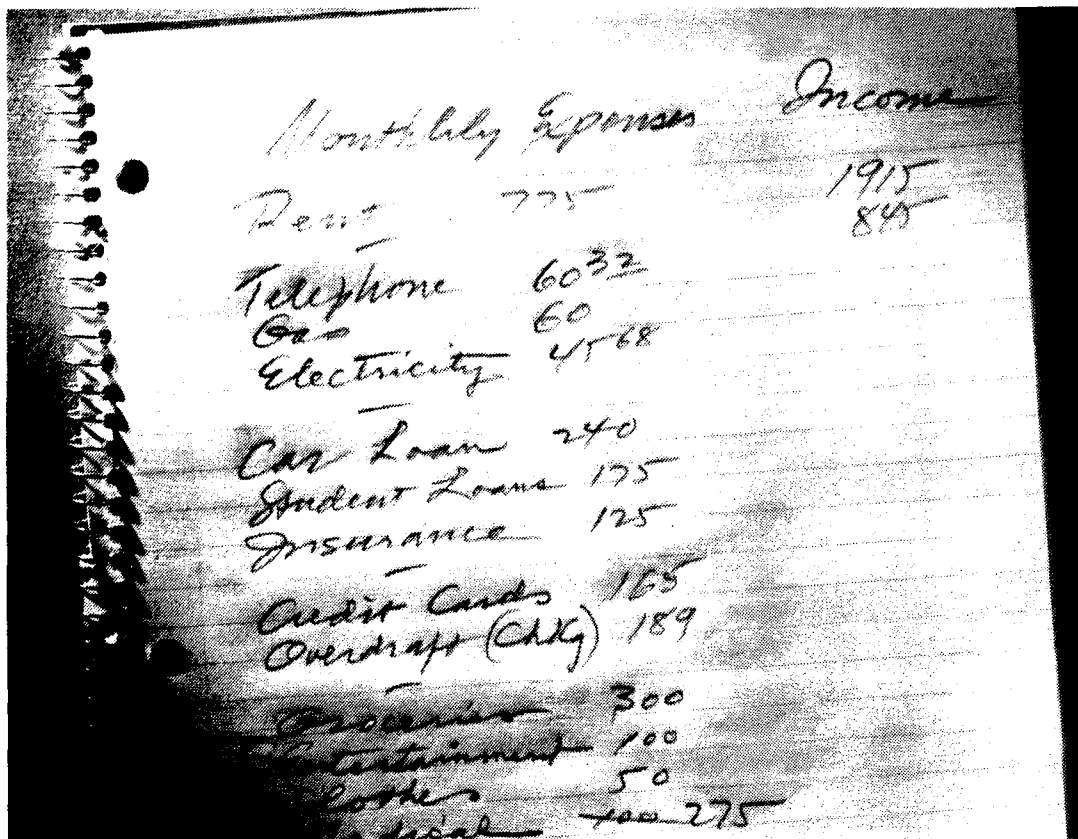 Monthlily Expenses Income
Rent 775 1915
845
Telephone 60 32
Gas 60
Electricity 45 68
Car Loan 240
Student Loans 175
Insurance 125
Credit Cards 165
Overdraft (ChKg) 189
Groceries 300
Entertainment 100
Clothes 50
Medical 400 275